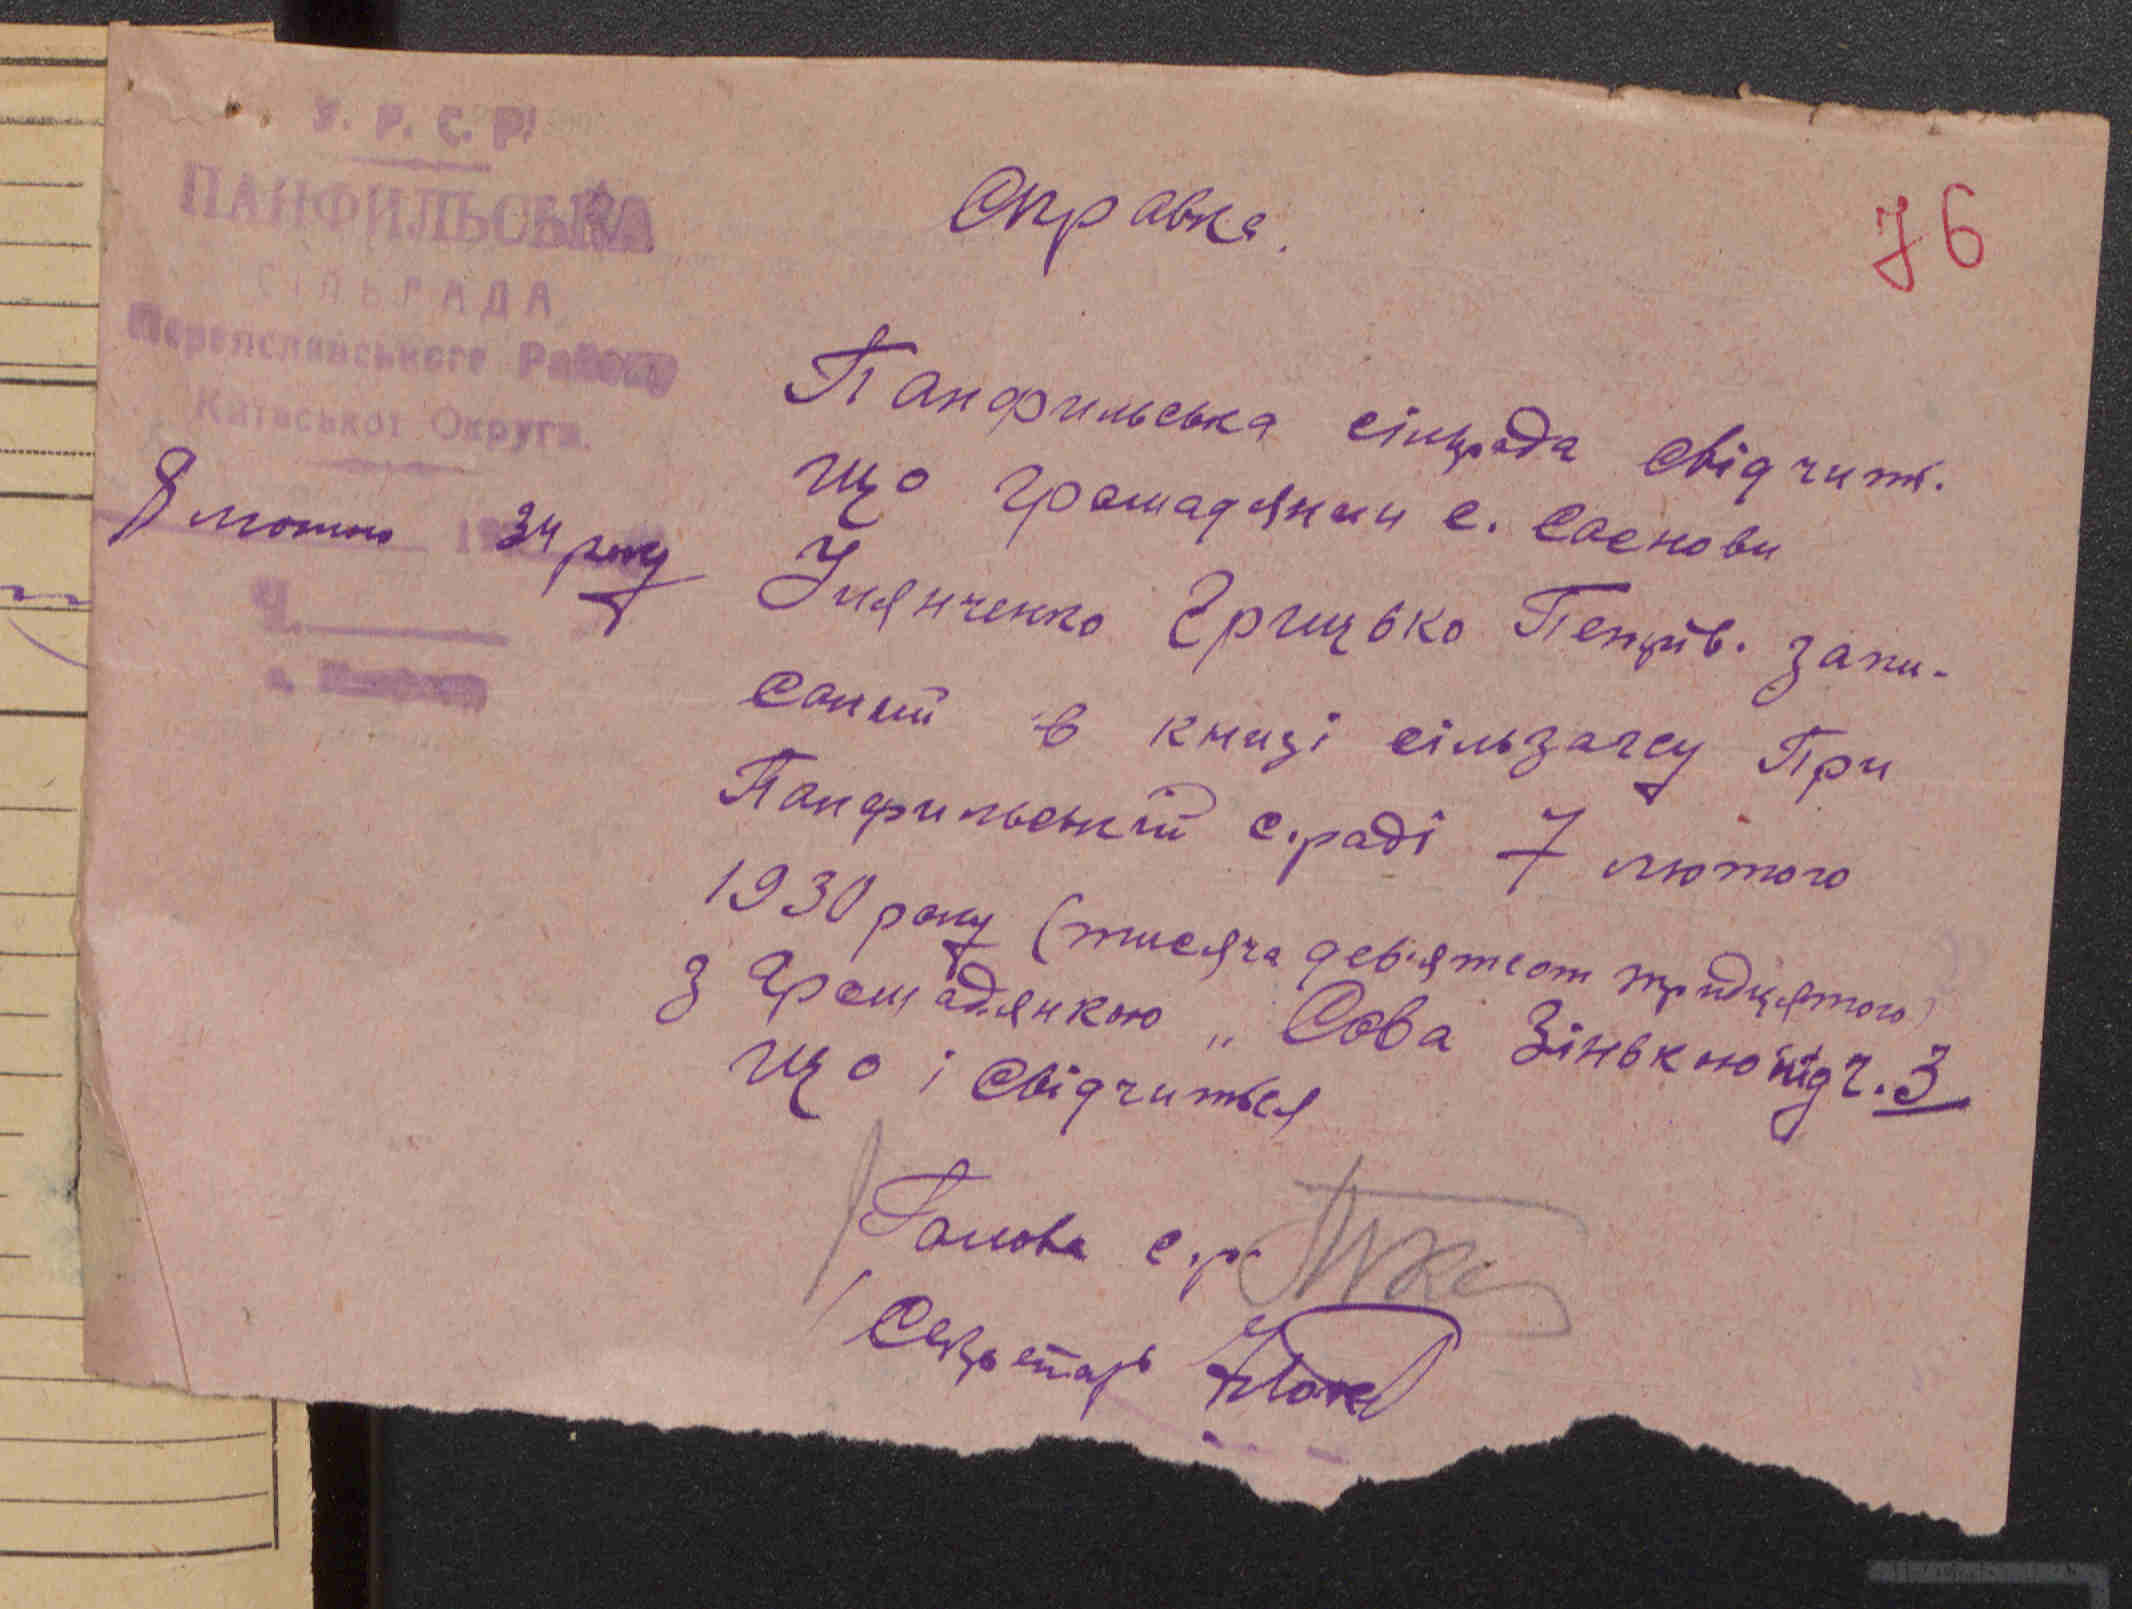 У. Р. С. Р.
ПАНФИЛЬСЬКА
СІЛЬРАДА
Переяславського Району
Київської Округи.
8 лютого 34 року
Ч.
Справка.
76
Панфильська сільрада свідчить.
що громадянин с. Соснови
Грицько запи-
саний в книзі сільзагсу При
Панфильській с.раді 7 лютого
1930 року (тисяча девятсот тридцятого)
з громадянкою „ Сова Зінькою під ч. 3
що і свідчиться
Голова с.р.
Секретарь